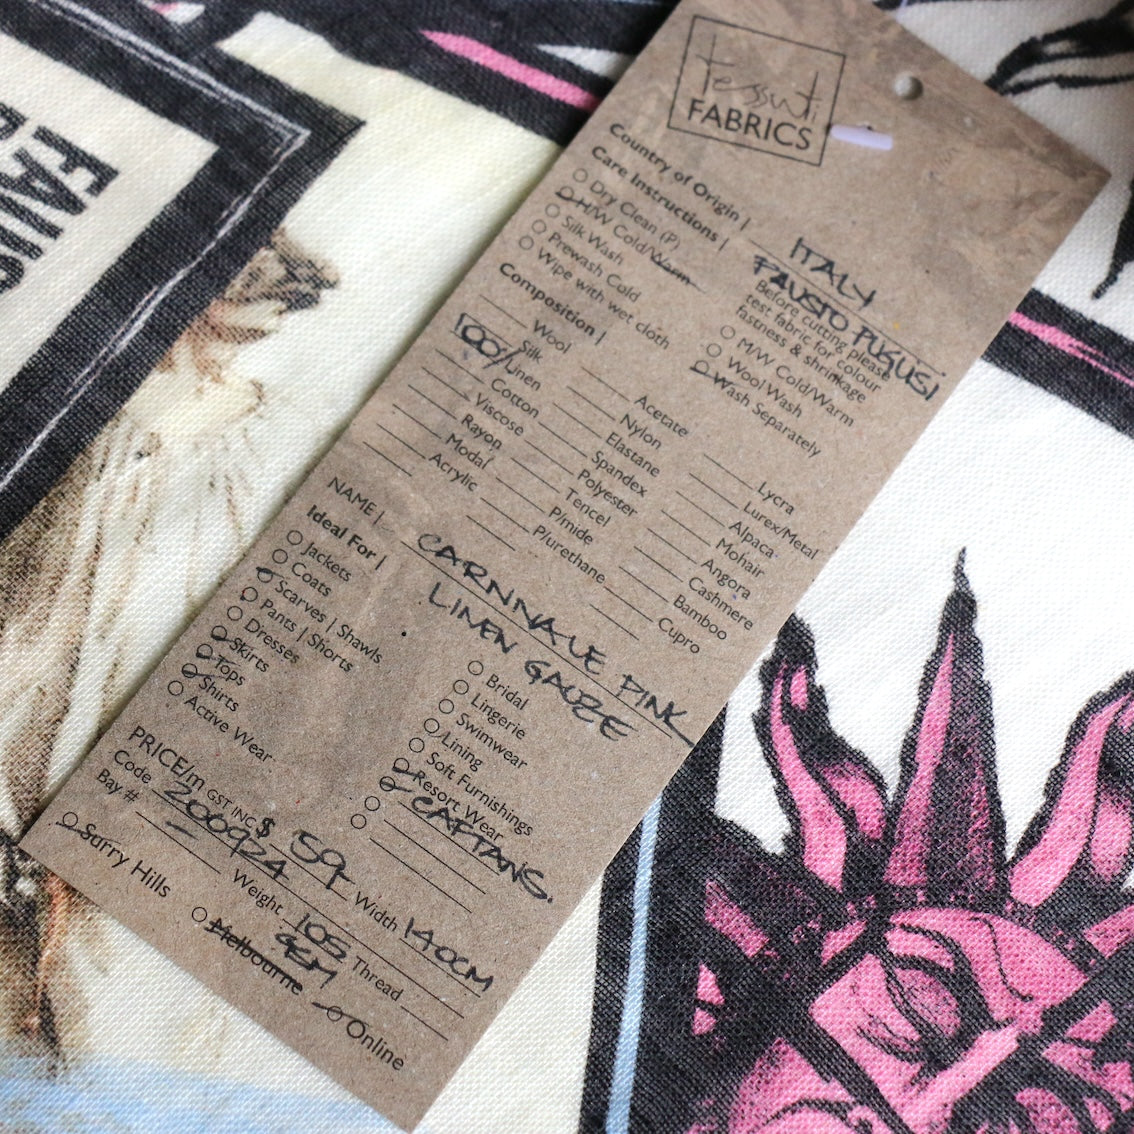 tessuti
FABRICS
Country of Origin | ITALY
FAUSTO PUGUSI
Care Instructions |
Before cutting please
test fabric for colour
fastness & shrinkage
Dry Clean (P)
H/W Cold/Warm
Silk Wash
Prewash Cold
Wipe with wet cloth
M/W Cold/Warm
Wool Wash
Wash Separately
Composition |
Wool
Silk
100% Linen
Cotton
Viscose
Rayon
Modal
Acrylic
Acetate
Nylon
Elastane
Spandex
Polyester
Tencel
P/mide
P/urethane
Lycra
Lurex/Metal
Alpaca
Mohair
Angora
Cashmere
Bamboo
Cupro
NAME | CARNNALE PINK
LINEN GAUZE
Ideal For |
Jackets
Coats
Scarves | Shawls
Pants | Shorts
Dresses
Skirts
Tops
Shirts
Active Wear
Bridal
Lingerie
Swimwear
Lining
Soft Furnishings
Resort Wear
CAFTANS.
PRICE/m GST INC $ 59 Width 140CM
Code 200924 Weight 105 Thread
GSM
Bay # -
Surry Hills
Melbourne
Online